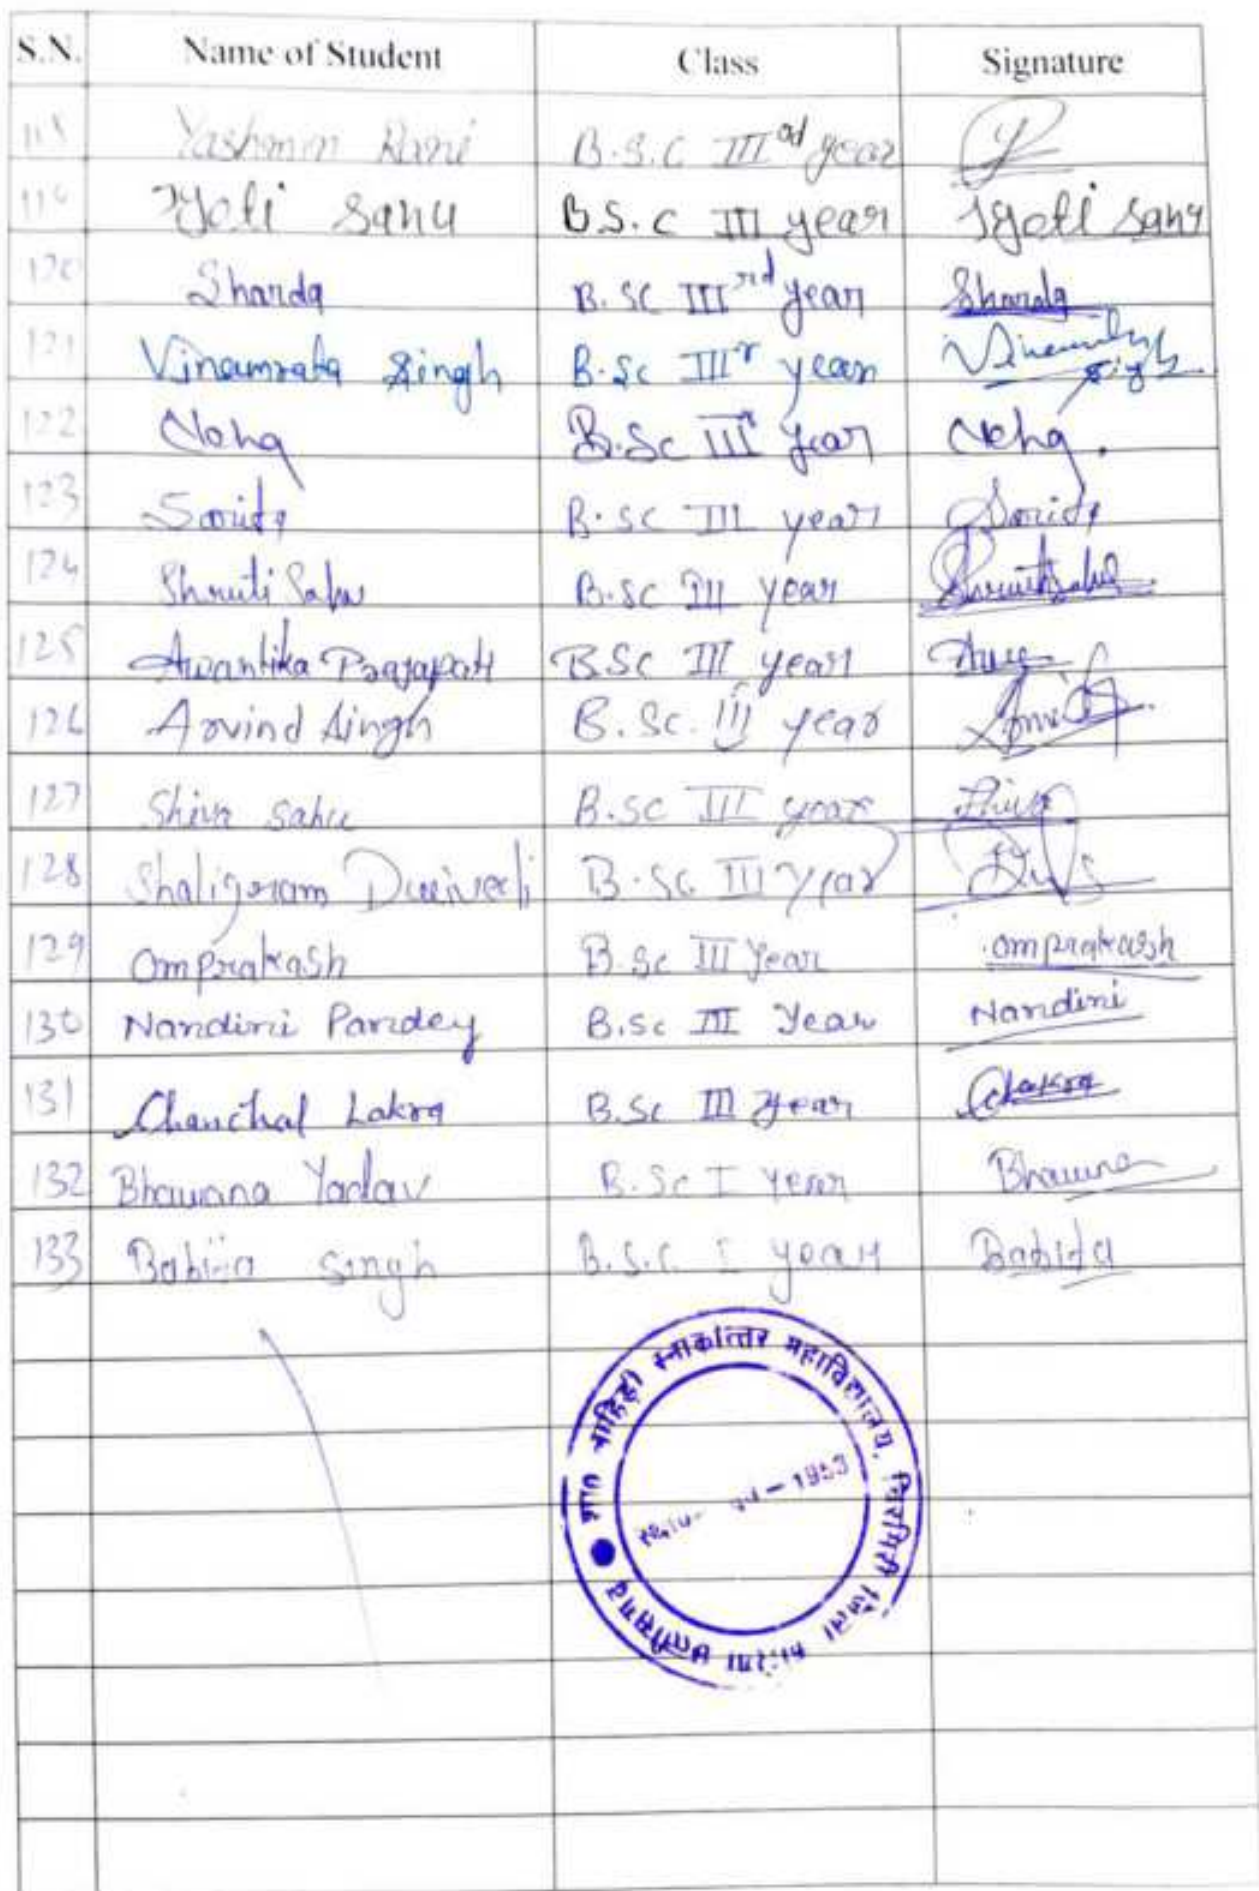 S.N. Name of Student Class Signature
118 Yashmin Rani B.S.C III rd year
119 Jyoti Sahu B.S.C III year Jyoti Sahu
120 Sharda B.SC III rd year Sharda
121 Vinamrata Singh B.Sc III r year Singh
122 Neha B.Sc III year Neha.
123 Sarita B.SC III year Sarita
124 Shruti Sahu B.SC III year Shruti Sahu
125 Awantika Prajapati BSC III year
126 Arvind Singh B.Sc. III year
127 Shiva Sahu B.SC III year Shiva
128 Shaligram Dwivedi B.SC III year
129 Omprakash B.Sc III Year Omprakash
130 Nandini Pandey B.Sc III Year Nandini
131 Chanchal Lakra B.Sc III Year
132 Bhawana Yadav B.Sc I Year Bhawna
133 Babita Singh B.S.C I year Babita
लाहिड़ी स्नाकोत्तर महाविद्यालय, चिरमिरी जिला कोरिया छत्तीसगढ़
1953